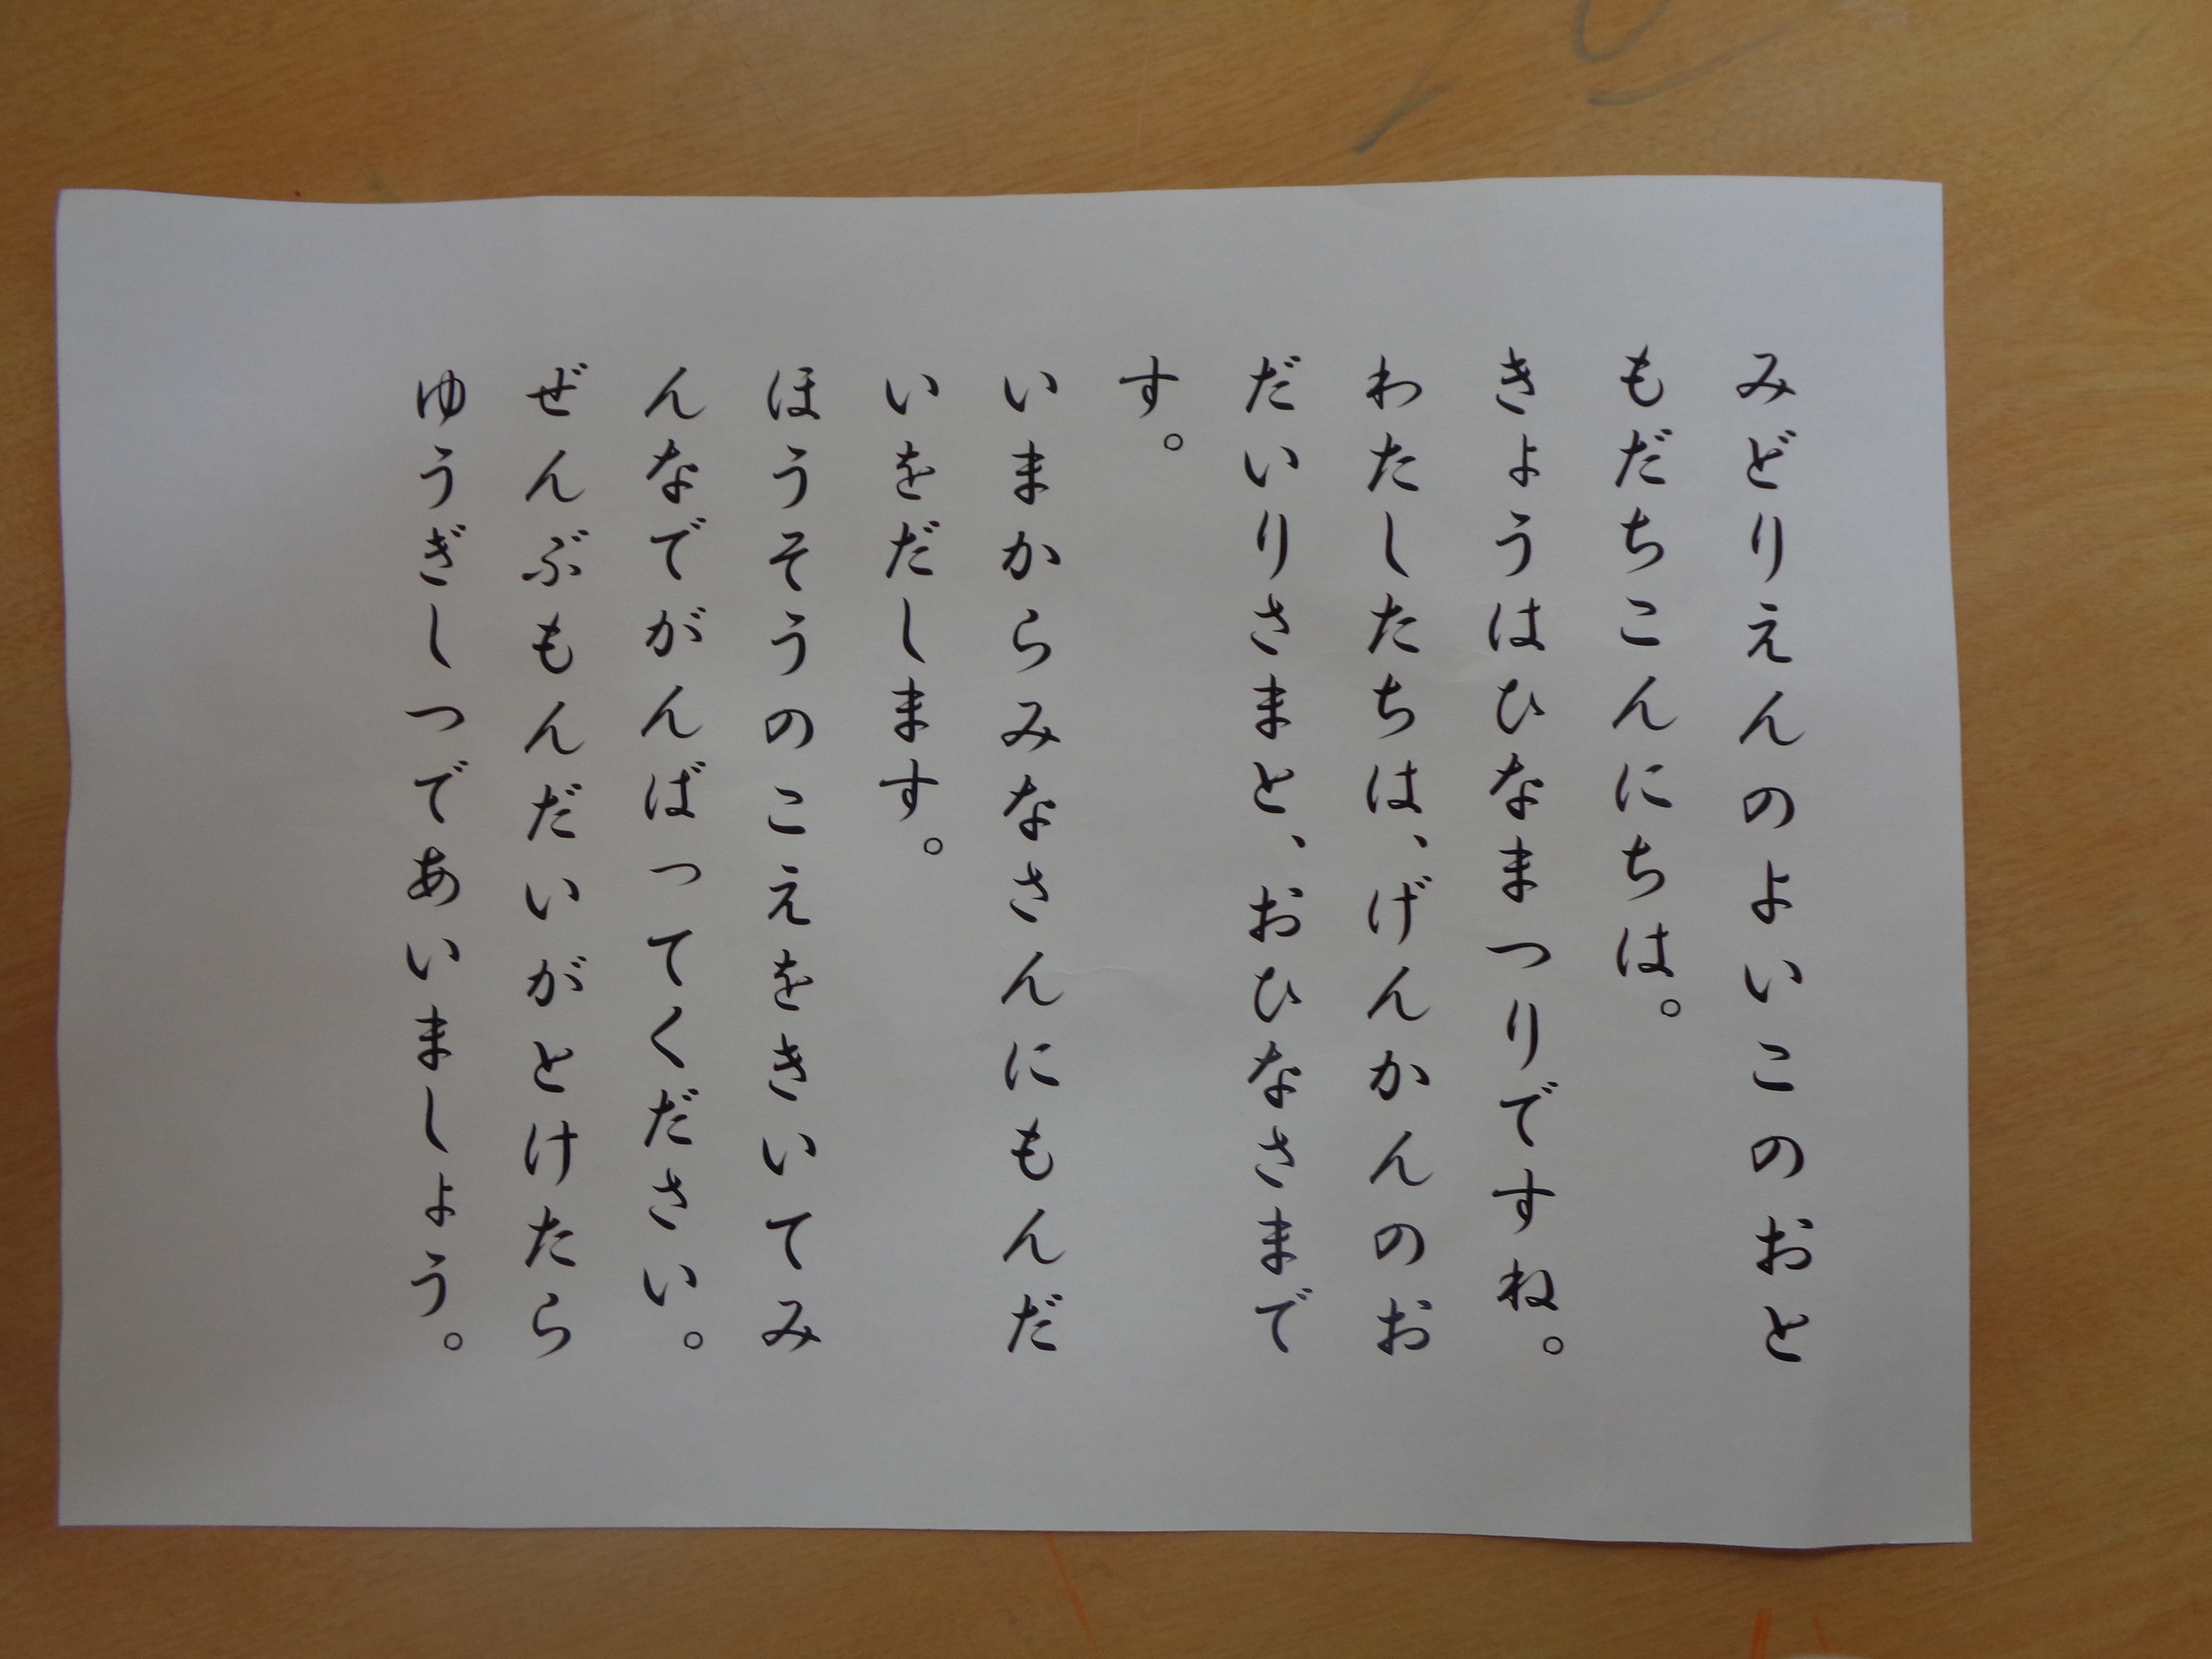 みどりえんのよいこのおと
もだちこんにちは。
きょうはひなまつりですね。
わたしたちは、げんかんのお
だいりさまと、おひなさまで
す。
いまからみなさんにもんだ
いをだします。
ほうそうのこえをきいてみ
んなでがんばってください。
ぜんぶもんだいがとけたら
ゆうぎしつであいましょう。